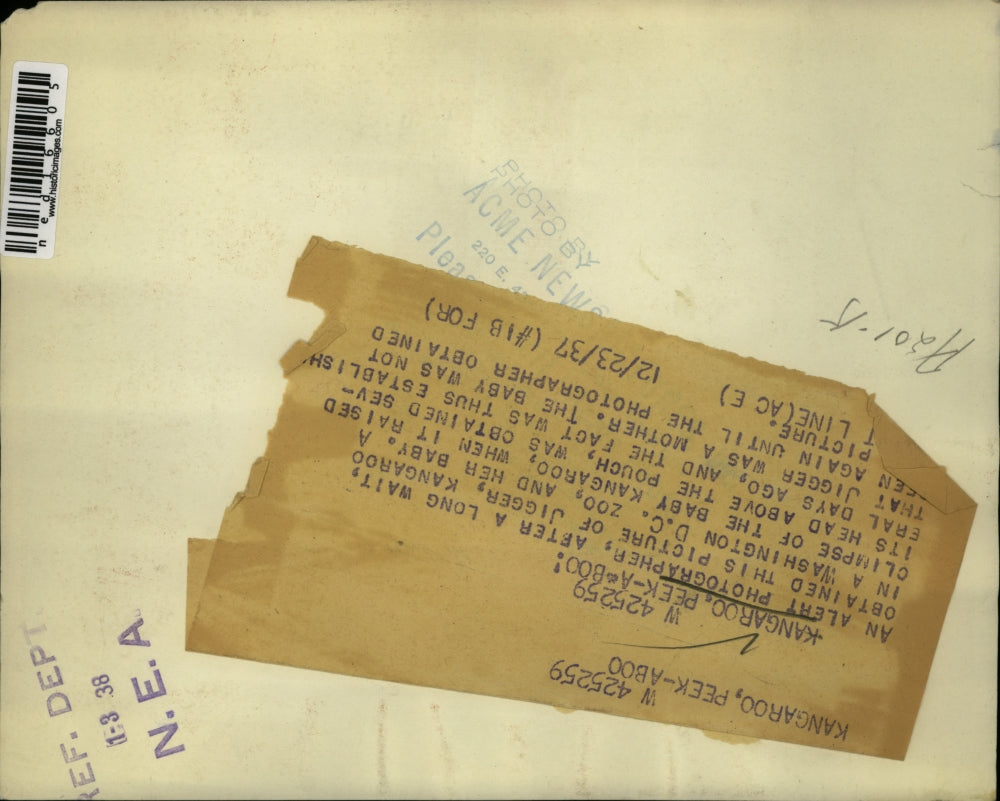 KANGAROO, PEEK-ABOO
W 425259
W 425259
KANGAROO, PEEK-A-BOO!
AN ALERT PHOTOGRAPHER, AFTER A LONG WAIT,
OBTAINED THIS PICTURE OF JIGGER, KANGAROO
IN A WASHINGTON D.C. ZOO, AND HER BABY. A
CLIMPSE OF THE BABY KANGAROO, WHEN IT RAISED
ITS HEAD ABOVE THE POUCH, WAS OBTAINED SEV-
ERAL DAYS AGO, AND THE FACT WAS THUS ESTABLISH
THAT JIGGER WAS A MOTHER. THE BABY WAS NOT
EEN AGAIN UNTIL THE PHOTOGRAPHER OBTAINED
PICTURE.
T LINE (AC E) 12/23/37 (#1B FOR)
PHOTO BY
PHOTO BY
ACME NEWS
220 E. 42
Pleas
REF. DEPT
1-3 38
N. E. A.
ned16605
www.historicimages.com